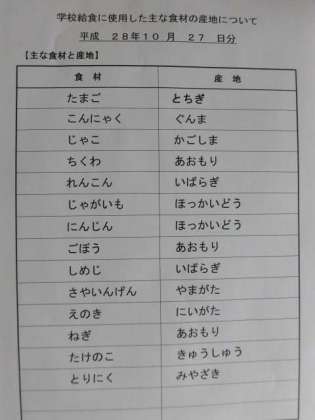 学校給食に使用した主な食材の産地について
平成 28年10 月 27 日分
【主な食材と産地】
食 材 産 地
たまご とちぎ
こんにゃく ぐんま
じゃこ かごしま
ちくわ あおもり
れんこん いばらぎ
じゃがいも ほっかいどう
にんじん ほっかいどう
ごぼう あおもり
しめじ いばらぎ
さやいんげん やまがた
えのき にいがた
ねぎ あおもり
たけのこ きゅうしゅう
とりにく みやざき